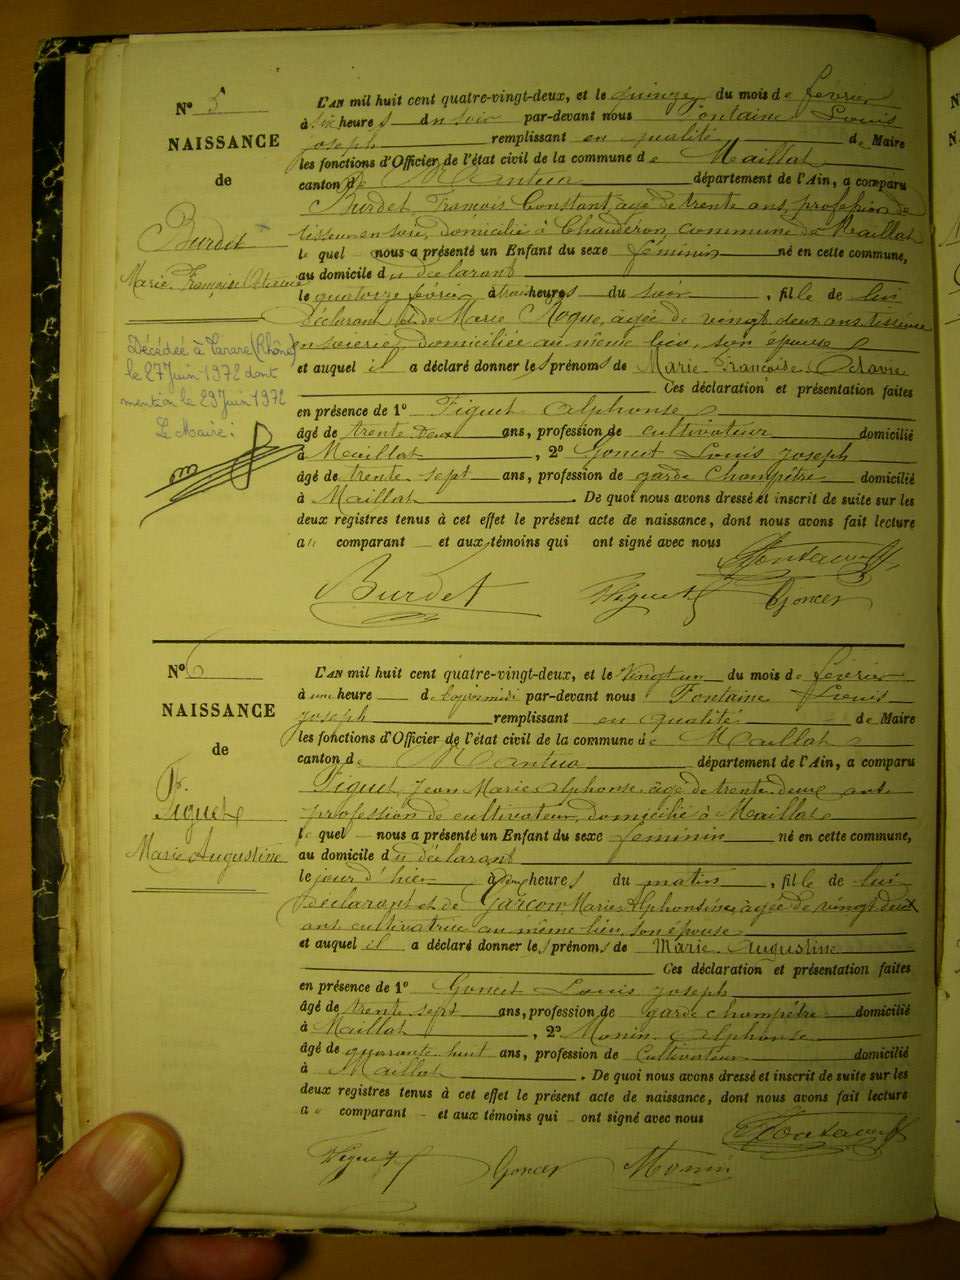 N° 5
NAISSANCE
de
Burdet
Marie Françoise Octavie
Décédée à Tarare (Rhône)
le 27 Juin 1972 dont
mention le 29 Juin 1972
Le Maire :
L'AN mil huit cent quatre-vingt-deux, et le quinze du mois de février
à six heures du soir par-devant nous Fontaine Louis
Joseph remplissant en qualité de Maire
les fonctions d'Officier de l'état civil de la commune de Maillat
canton de Nantua département de l'Ain, a comparu
Burdet François Constant, agé de trente ans, profession de
tisseur en soie, domicilié à Chaudéron, commune de Maillat
lequel nous a présenté un Enfant du sexe féminin né en cette commune,
au domicile du déclarant
le quatorze février à trois heures du soir, fille de lui
déclarant et de Marie Hogue, agée de vingt deux ans, tisseuse
en soierie, domiciliée au même lieu, son épouse
et auquel il a déclaré donner les prénoms de Marie Françoise Octavie
Ces déclaration et présentation faites
en présence de 1° Figuet Alphonse
âgé de trente deux ans, profession de cultivateur domicilié
à Maillat, 2° Goncet Louis Joseph
âgé de trente sept ans, profession de garde champêtre domicilié
à Maillat. De quoi nous avons dressé et inscrit de suite sur les
deux registres tenus à cet effet le présent acte de naissance, dont nous avons fait lecture
au comparant et aux témoins qui ont signé avec nous
Fontaine
Burdet Figuet Goncet
N° 6
NAISSANCE
de
Figuet
Marie Augustine
L'AN mil huit cent quatre-vingt-deux, et le vingt un du mois de février
à une heure de l'après midi par-devant nous Fontaine Louis
Joseph remplissant en qualité de Maire
les fonctions d'Officier de l'état civil de la commune de Maillat
canton de Nantua département de l'Ain, a comparu
Figuet, Jean Marie Alphonse agé de trente deux ans
profession de cultivateur, domicilié à Maillat
lequel nous a présenté un Enfant du sexe féminin né en cette commune,
au domicile du déclarant
le jour d'hier à heures du matin, fille de lui
déclarant et de Garçon Marie Alphonsine, agée de vingt deux
ans cultivatrice au même lieu, son épouse
et auquel il a déclaré donner les prénoms de Marie Augustine
Ces déclaration et présentation faites
en présence de 1° Goncet Louis Joseph
âgé de trente sept ans, profession de garde champêtre domicilié
à Maillat, 2° Monin Alphonse
âgé de quarante huit ans, profession de Cultivateur domicilié
à Maillat. De quoi nous avons dressé et inscrit de suite sur les
deux registres tenus à cet effet le présent acte de naissance, dont nous avons fait lecture
au comparant et aux témoins qui ont signé avec nous
Fontaine
Figuet Goncet Monin